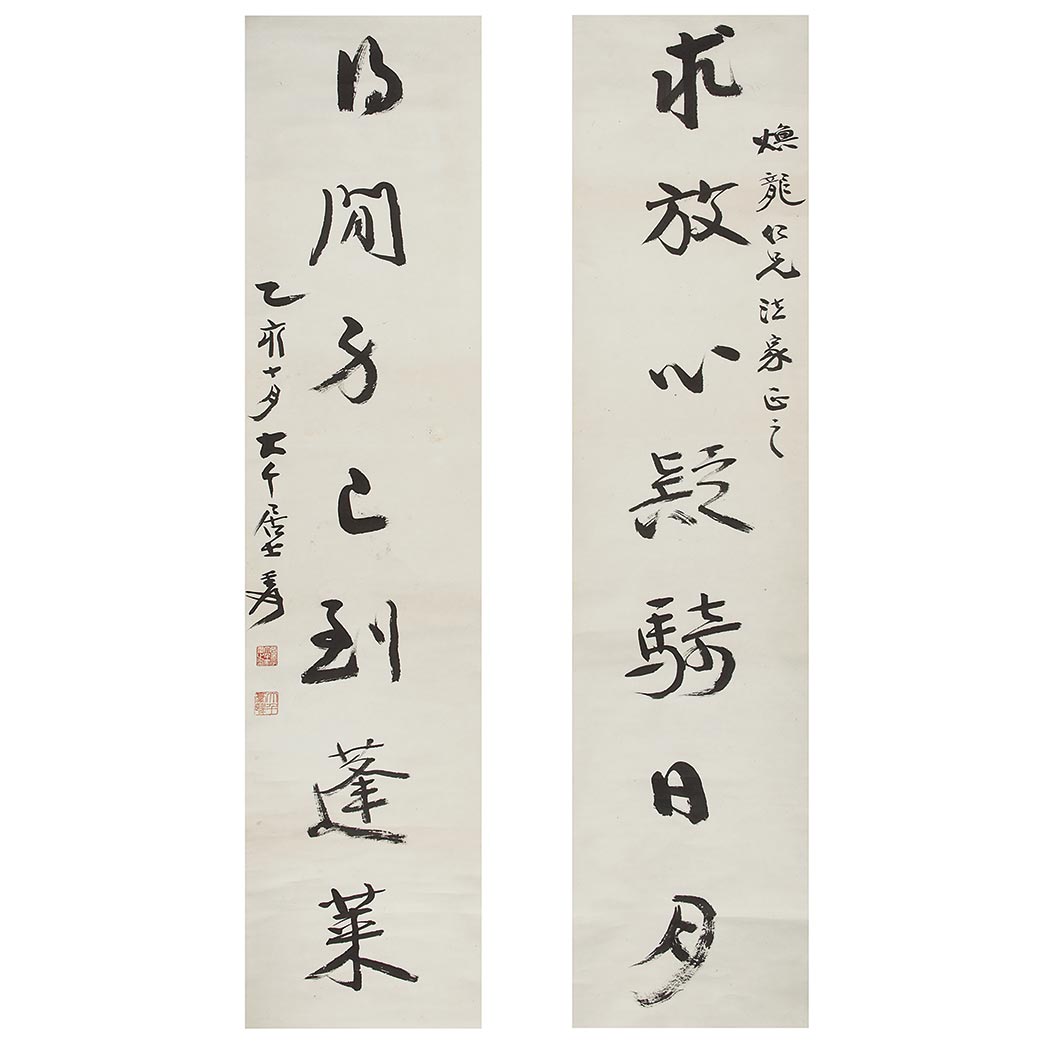 煥龍仁兄法家正之
求放心疑騎日月
得閒身已到蓬萊
乙亥十月大千居士爰